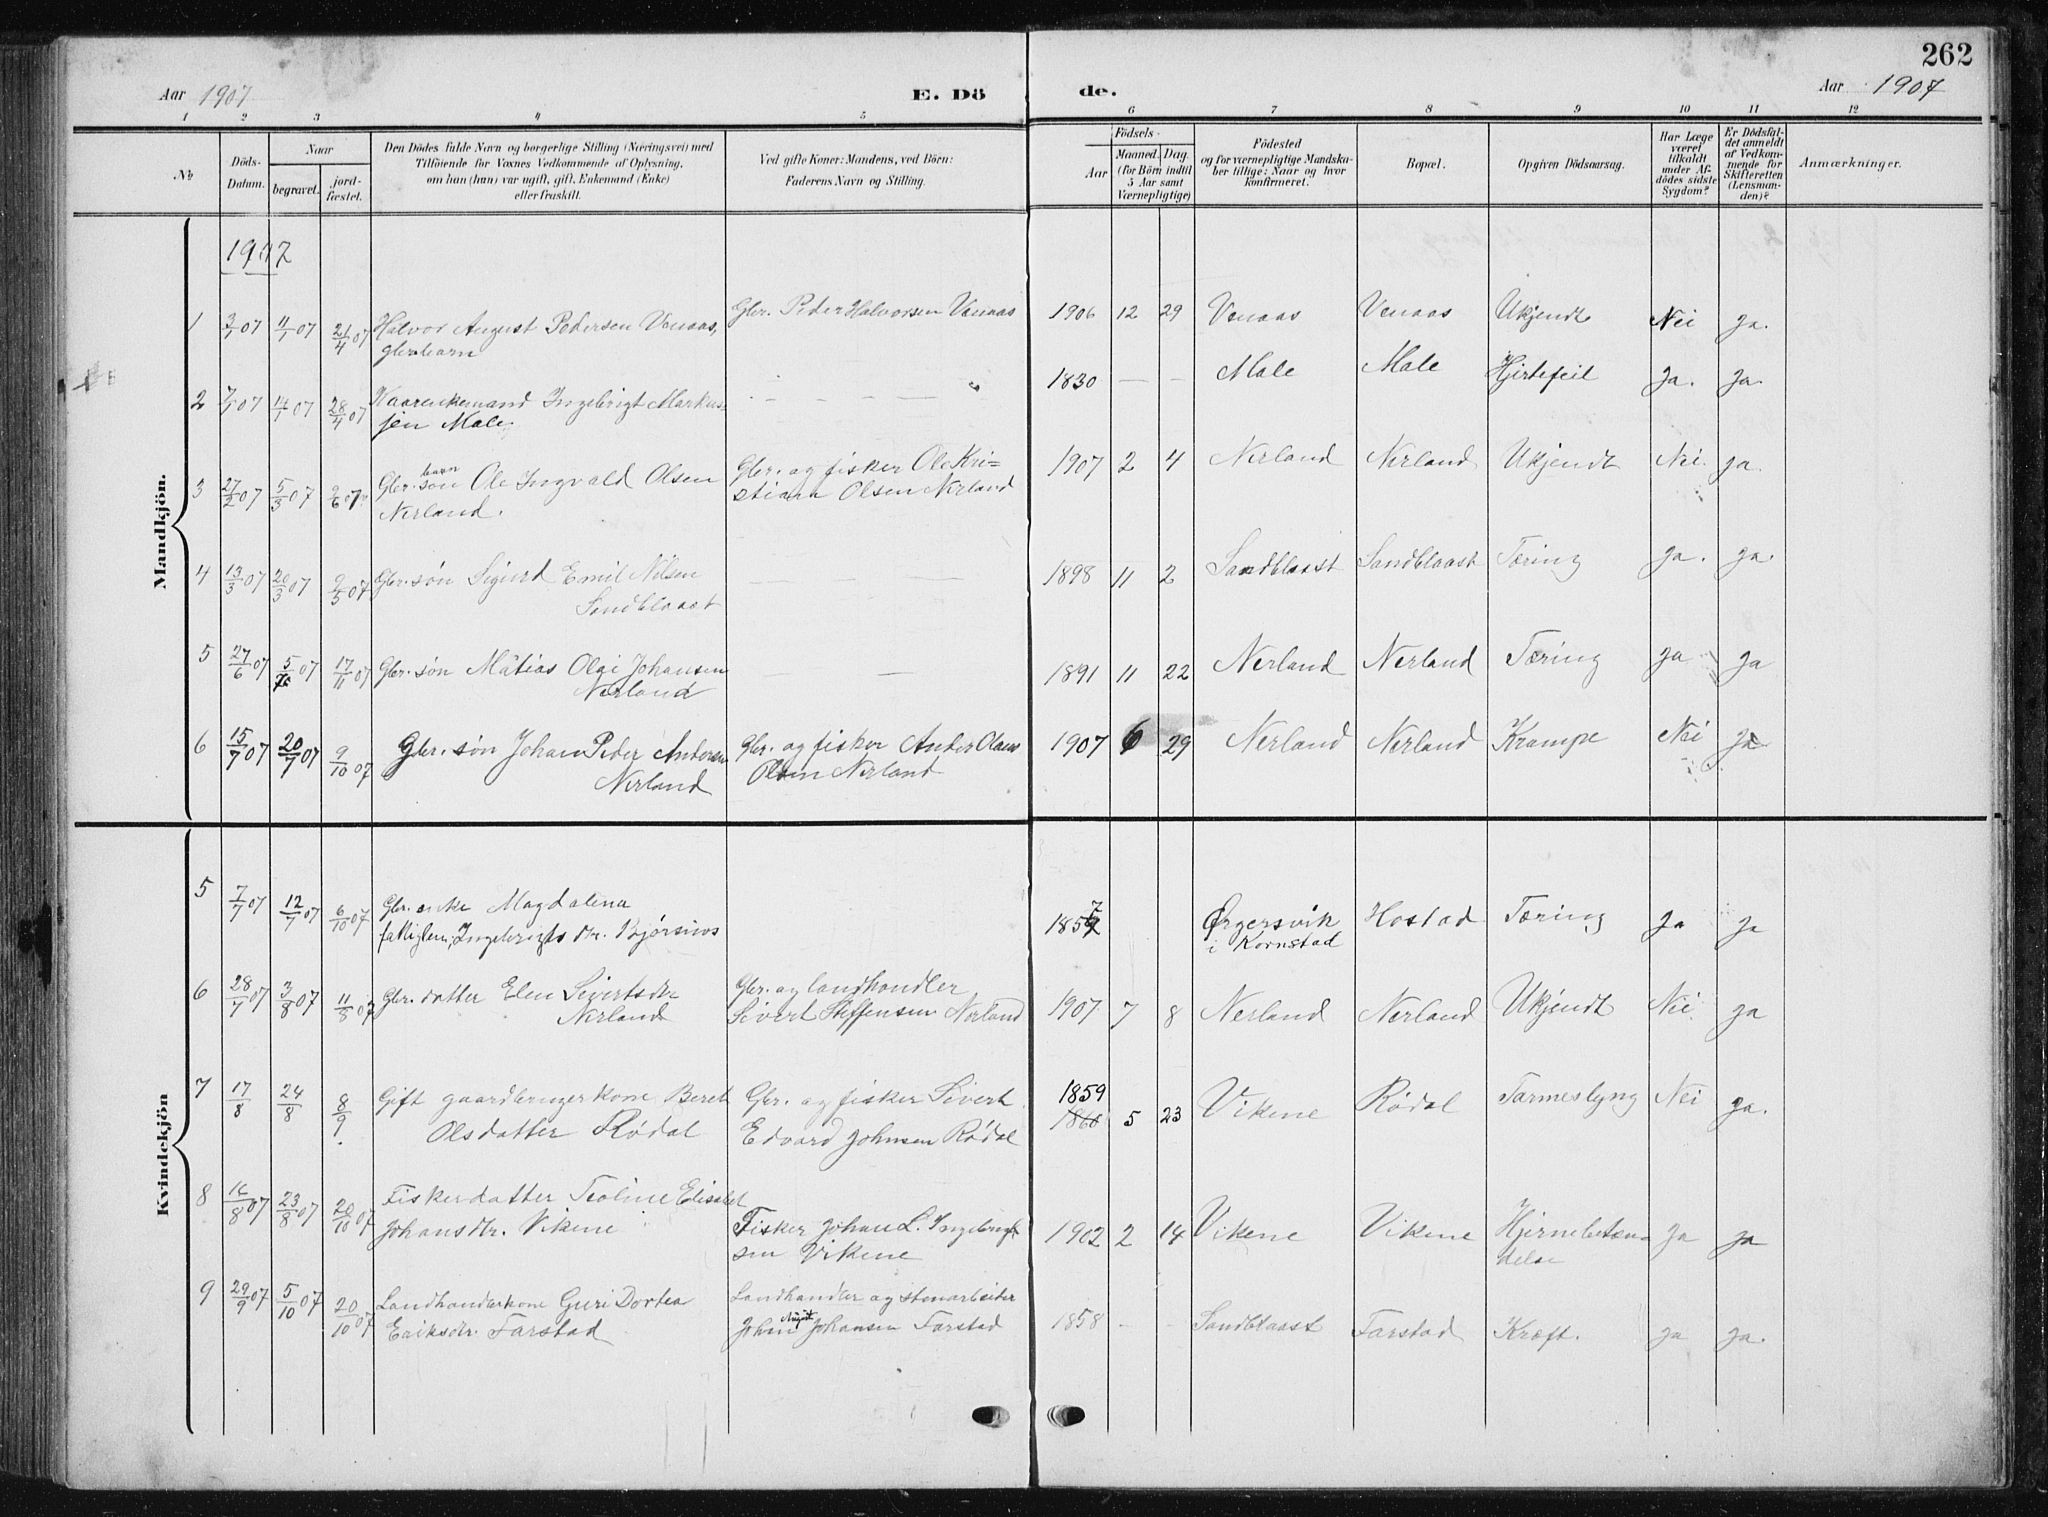 262
Aar 1907 E. Dö de. Aar 1907
1 2 3 4 5 6 7 8 9 10 11 12
No
Döds-
Datum.
Naar
begravet.
jord-
fæstet.
Den Dödes fulde Navn og borgerlige Stilling (Næringsvei) med
Tilföiende for Voxnes Vedkommende af Oplysning,
om han (hun) var ugift, gift, Enkemand (Enke)
eller fraskilt.
Ved gifte Koner: Mandens, ved Börn:
Faderens Navn og Stilling.
Födsels-
Aar
Maaned. Dag.
(for Börn indtil
5 Aar samt
Værnepligtige)
Födested
og for værnepligtige Mandska-
ber tillige: Naar og hvor
konfirmeret.
Bopæl.
Opgiven Dödsaarsag.
Har Læge
været
tilkaldt
under Af-
dödes sidste
Sygdom?
Er Dödsfal-
det anmeldt
af Vedkom-
mende for
Skifteretten
(Lensman-
den)?
Anmærkninger.
Mandkjön.
1907
1 3/1 07 11/1 07 21/4 07 Halvor August Pedersen Venaas,
gbr.barn
Gbr. Peder Halvorsen Venaas
1906 12 29 Venaas Venaas Ukjendt Nei ja.
2 7/1 07 14/1 07 28/4 07 Kaarenkemand Ingebrigt Markus-
sen Male
— — — —
1830 — — Male Male Hjertefeil ja. ja.
3 27/2 07 5/3 07 9/6 07 Gbr. søn barn Ole Ingvald Olsen
Nerland.
Gbr. og fisker Ole Kri-
stian Olsen Nerland
1907 2 4 Nerland Nerland Ukjendt Nei. ja.
4 13/3 07 20/3 07 9/5 07 Gbr. søn Sigurd Emil Nilsen
Sandblaast
— — —
1898 11 2 Sandblaast Sandblaast Tæring ja. ja.
5 27/6 07 5/7 07 17/11 07 Gbr. søn Mätias Olai Johansen
Nerland
— —
1891 11 22 Nerland Nerland Tæring ja ja
6 15/7 07 20/7 07 9/10 07 Gbr. søn Johan Peder Andersen
Nerland
Gbr. og fisker Ander Olaus
Olsen Nerland
1907 6 29 Nerland Nerland Krampe Nei ja
Kvindekjön
5 7/7 07 12/7 07 6/10 07 Gbr. enke Magdalena
fattiglem, Ingebrigts dr. Bjørsnos
1857 Ørgersvik
i Kornstad
Hostad Tæring ja ja
6 28/7 07 3/8 07 11/8 07 Gbr. datter Elen Sivertsdtr
Nerland
Gbr. og landhandler
Sivert Steffensen Nerland
1907 7 8 Nerland Nerland Ukjendt Nei. ja
7 17/8 24/8 8/9 Gift gaardbrugerkone Beret
Olsdatter Rødal
Gbr. og fisker Sivert
Edvard Johnsen Rødal
1859
1860 5 23 Vikene Rødal Tarmeslyng Nei ja.
8 16/8 07 23/8 07 20/10 07 Fiskerdatter Teoline Elisabet
Johansdtr. Vikene
Fisker Johan L. Ingebrigt-
sen Vikene
1902 2 14 Vikene Vikene Hjernebetæn-
delse
ja ja
9 29/9 07 5/10 07 20/10 07 Landhandlerkone Guri Dortea
Eriksdr. Farstad
Landhandler og stenarbeider
Johan August Johansen Farstad
1858 — — Sandblaast Farstad Kræft. ja ja.